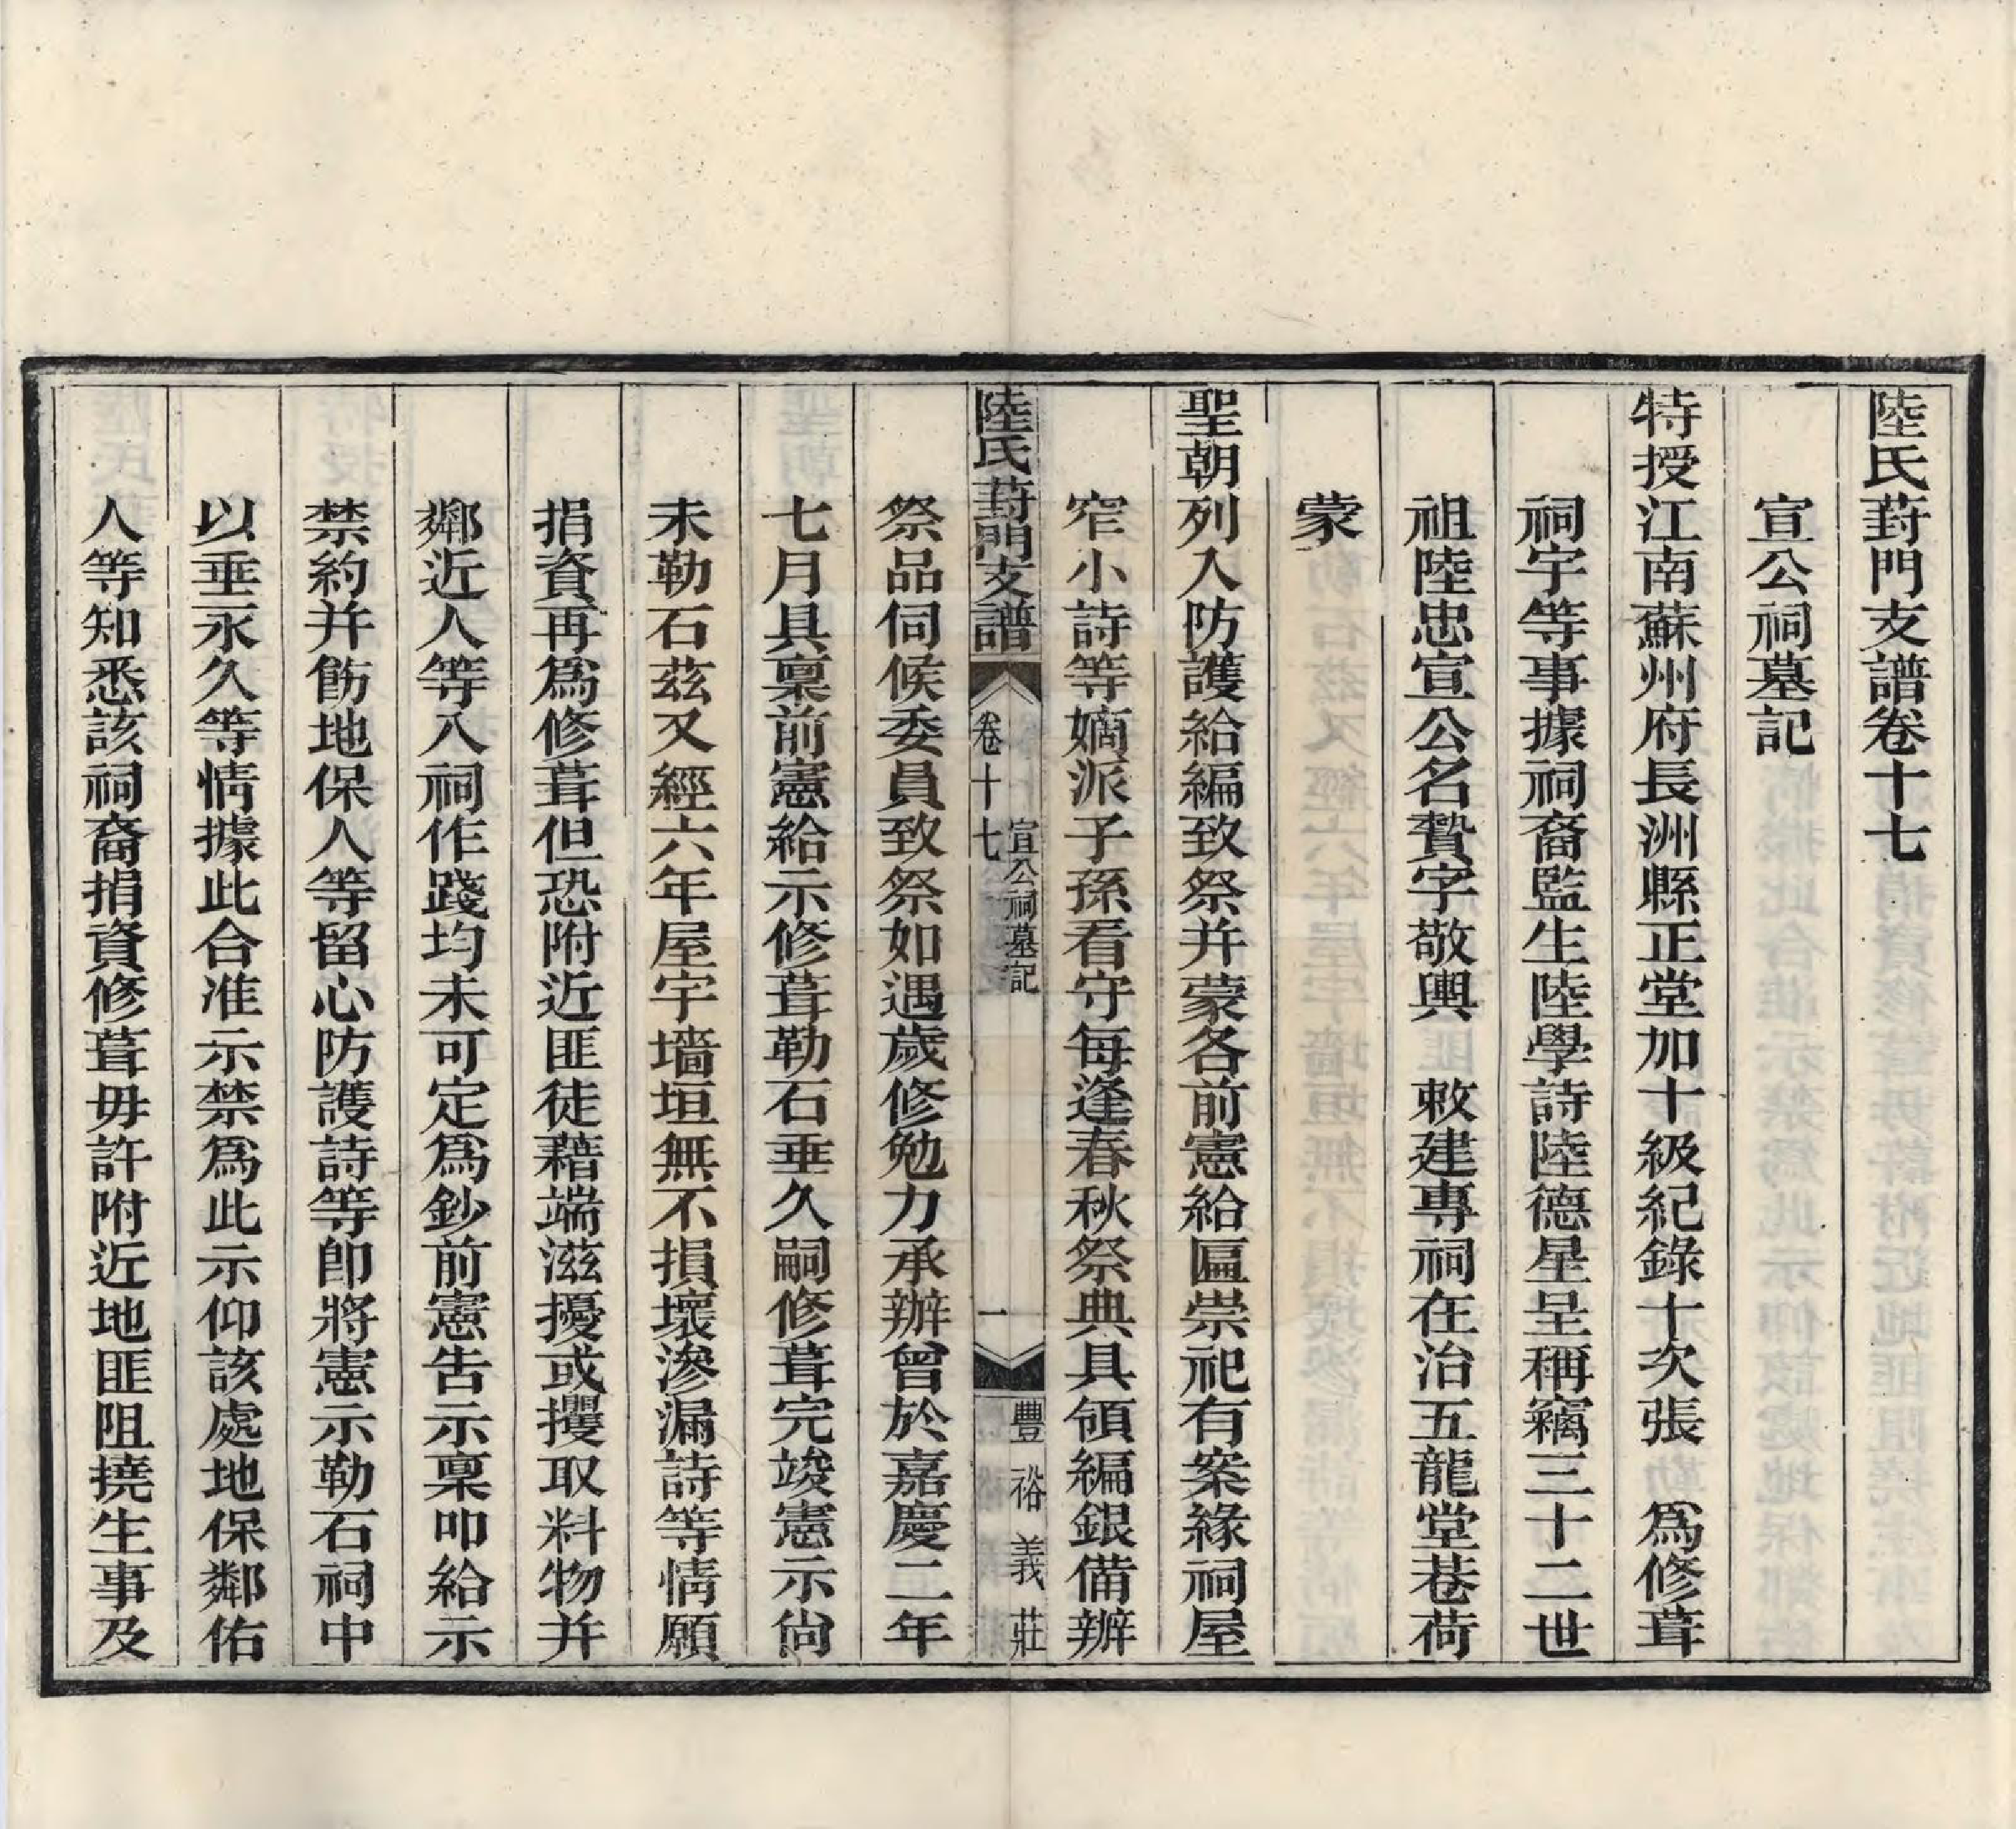 陸氏葑門支譜卷十七
宣公祠墓記
特授江南蘇州府長洲縣正堂加十級紀錄十次張　為修葺
祠宇等事據祠裔監生陸學詩陸德星呈稱竊三十二世
祖陸忠宣公名贄字敬輿　敕建專祠在治五龍堂巷荷
蒙
聖朝列入防護給編致祭并蒙各前憲給匾崇祀有案緣祠屋
窄小詩等嫡派子孫看守每逢春秋祭典具領編銀備辦
陸氏葑門支譜　卷十七　宣公祠墓記　一　豐裕義莊
祭品伺候委員致祭如遇歲修勉力承辦曾於嘉慶二年
七月具稟前憲給示修葺勒石垂久嗣修葺完竣憲示尙
未勒石茲又經六年屋宇墻垣無不損壞滲漏詩等情願
捐資再爲修葺但恐附近匪徒藉端滋擾或攫取料物并
鄰近人等入祠作踐均未可定爲鈔前憲告示稟叩給示
禁約并飭地保人等留心防護詩等卽將憲示勒石祠中
以垂永久等情據此合准示禁爲此示仰該處地保鄰佑
人等知悉該祠裔捐資修葺毋許附近地匪阻撓生事及